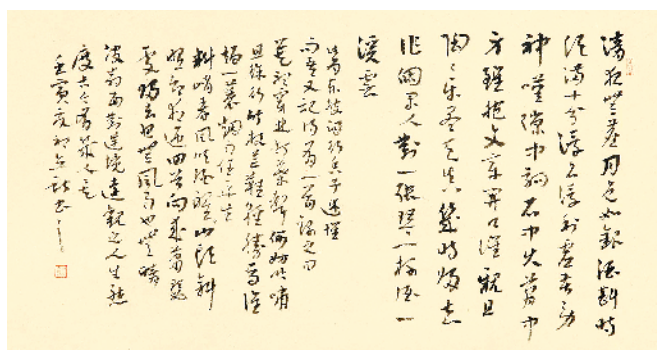 清夜無塵月色如銀酒斟時
須滿十分浮名浮利虛苦勞
神嘆隙中駒石中火夢中
身雖抱文章開口誰親且
陶々樂盡天真幾時歸去
作個閑人對一張琴一壺酒一
溪雲
東坡詞行香子述懷
而又記得一首詞曰
莫聽穿林打葉聲何妨吟嘯
且徐行竹杖芒鞋輕勝馬誰
怕一蓑煙雨任平生
料峭春風吹酒醒山頭斜
照卻相迎回首向來蕭瑟
處歸去也無風雨也無晴
面對逆境達觀之人生態
度
壬寅夏初書